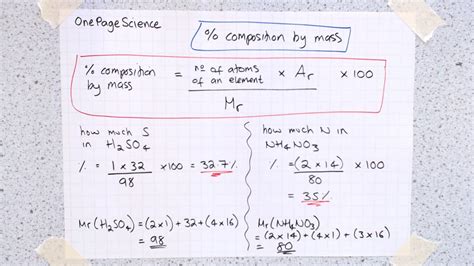 OnePageScience
% composition by mass
% composition by mass = no of atoms of an element × Ar × 100
Mr
how much S
in H₂SO₄
% = 1 × 32 ×100 = 32.7%
98
Mr(H₂SO₄) = (2×1) + 32 + (4×16)
= 98
how much N in
NH₄NO₃
% = (2 × 14) × 100
80
= 35%
Mr(NH₄NO₃)
= (2×14) + (4×1) + (3×16)
= 80